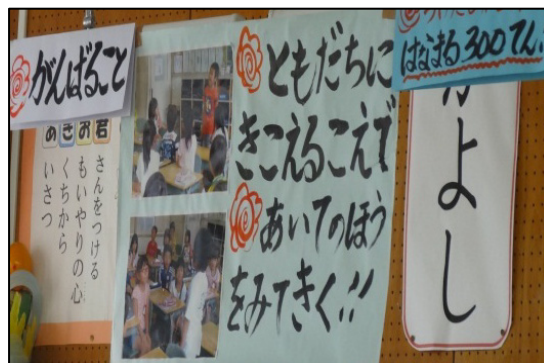 がんばること
君さんをつける
おもいやりの心
きくちから
あいさつ
ともだちに
きこえるこえで
あいてのほう
をみてきく!!
はなまる300てん
かよし